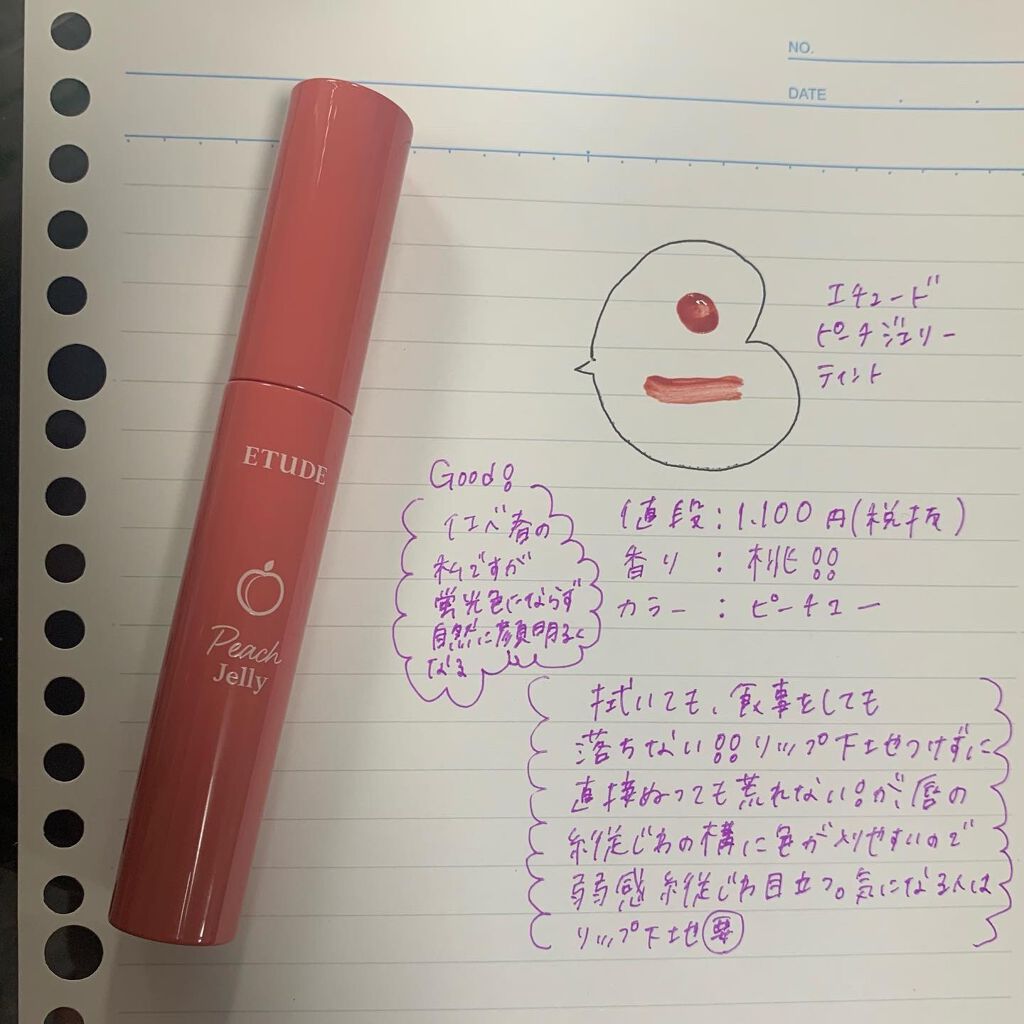 NO.
DATE
エチュード
ピーチジェリー
ティント
ETUDE
Peach
Jelly
Good!
イエベ春の
私ですが
蛍光色にならず
自然に顔明るく
なる
値段:1.100円(税抜)
香り:桃!!
カラー:ピーチュー
拭いても、食事をしても
落ちない!!リップ下地つけずに
直接ぬっても荒れない!が、唇の
縦じわの構に色が入りやすいので
弱弱感縦じわ目立つ。気になる人は
リップ下地要